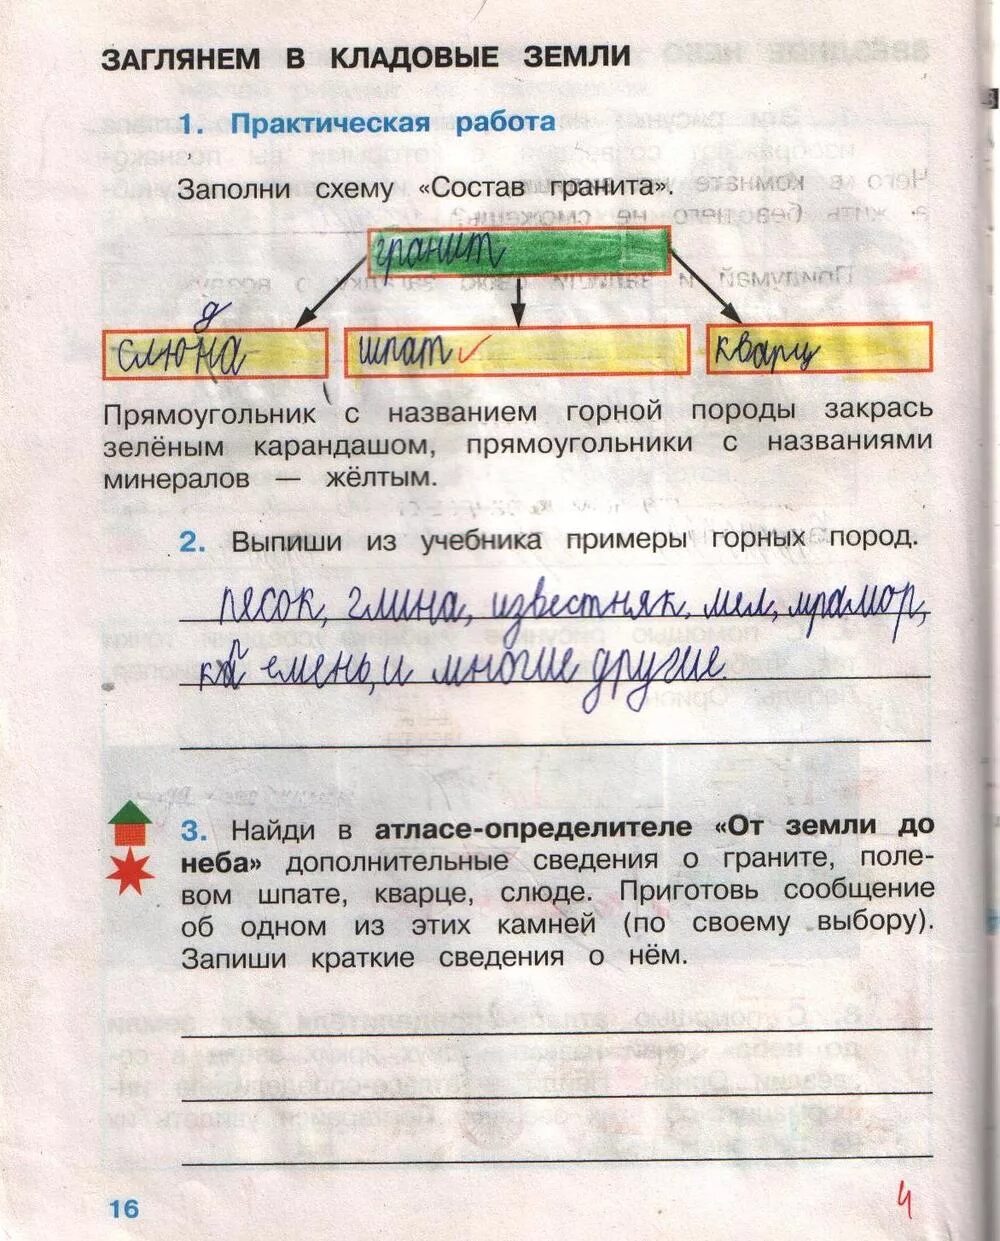 ЗАГЛЯНЕМ В КЛАДОВЫЕ ЗЕМЛИ
1. Практическая работа
Заполни схему «Состав гранита».
гранит
д
слюна шпат ✓ кварц
Прямоугольник с названием горной породы закрась
зелёным карандашом, прямоугольники с названиями
минералов — жёлтым.
2. Выпиши из учебника примеры горных пород.
песок, глина, известняк, мел, мрамор,
емень, и многие другие.
3. Найди в атласе-определителе «От земли до
неба» дополнительные сведения о граните, поле-
вом шпате, кварце, слюде. Приготовь сообщение
об одном из этих камней (по своему выбору).
Запиши краткие сведения о нём.
16
4